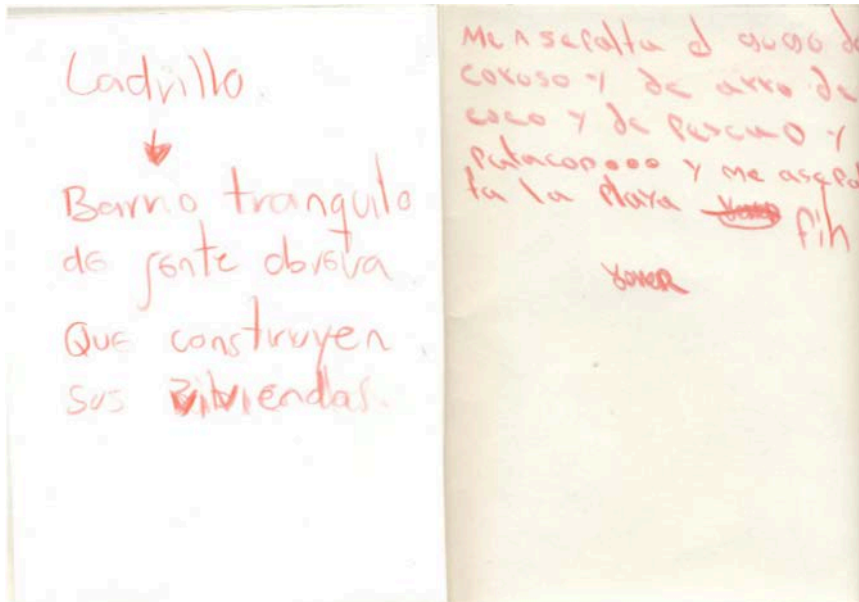 Ladrillo.
Barrio tranquilo
de gente obrera
Que construyen
sus viviendas.
Me
coroso y de arro de
coco y de pescao y
patacon y me
ta la playa fin